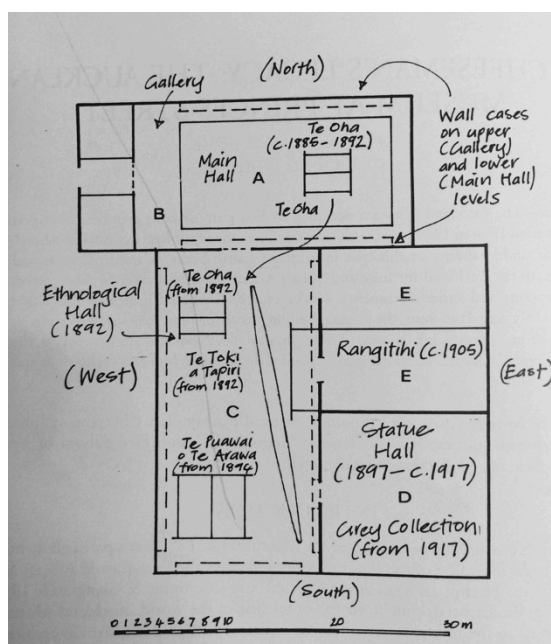 (North)
Gallery
Wall cases
on upper
(Gallery)
and lower
(Main Hall)
levels
Te Oha
(c.1885-1892)
Main
Hall
A
B
Te Oha
Te Oha
(from 1892)
Ethnological
Hall
(1892)
(West)
Te Toki
a Tapiri
(from 1892)
C
Te Puawai
o Te Arawa
(from 1894)
E
Rangitihi (c.1905)
E
(East)
Statue
Hall
(1897-c.1917)
D
Grey Collection
(from 1917)
(South)
0 1 2 3 4 5 6 7 8 9 10 20 30 m